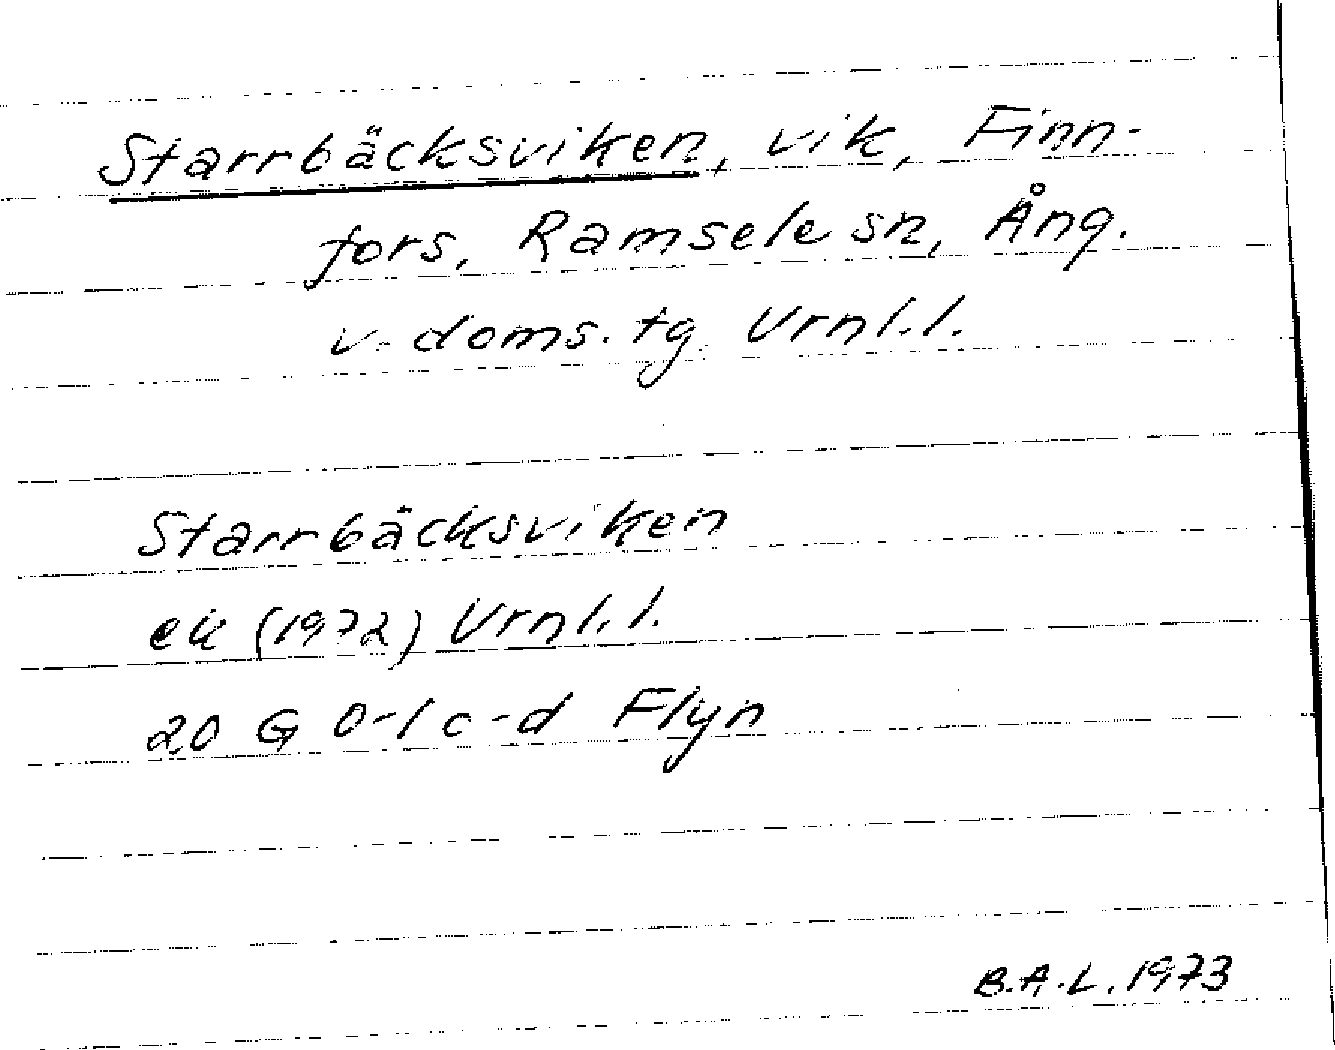 Starrbäcksviken, vik, Finn-
fors, Ramsele sn, Ång.
v. doms. tg. Vrnl.l.
Starrbäcksviken
ek (1972) Vrnl.l.
20 G 0-1 c-d Flyn
B.A.L. 1973